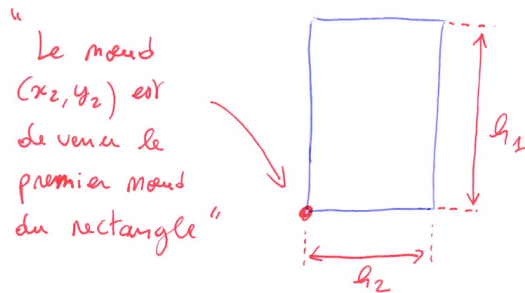 "
Le nœud
(x₂, y₂) est
devenu le
premier nœud
du rectangle"
h₁
h₂